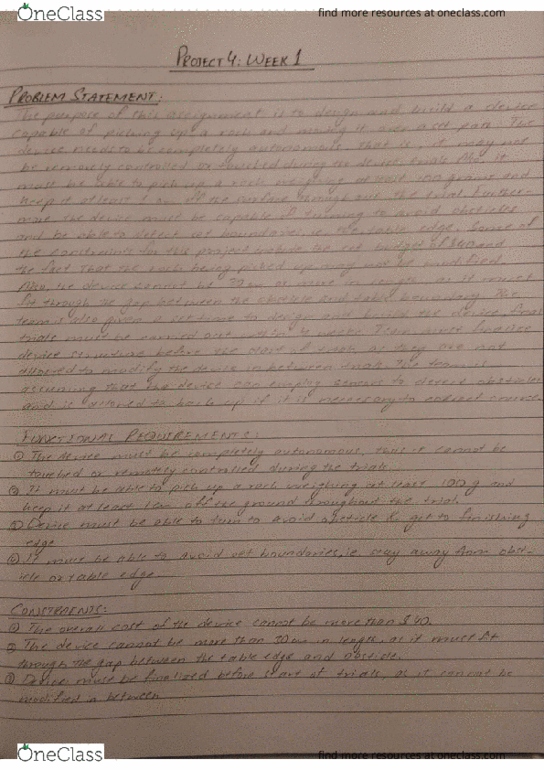 OneClass
find more resources at oneclass.com
PROJECT 4: WEEK 1
PROBLEM STATEMENT:
The purpose of this assignment is to design and build a device
capable of picking up a rock and moving it over a set path. The
device needs to be completely autonomous. That is, it may not
be remotely controlled or touched during the device trials. Also, it
must be able to pick up a rock weighing at least 100 grams and
keep it at least 1 cm off the surface throughout the trial. Further-
more, the device must be capable of turning to avoid obstacles
and be able to detect set boundaries, i.e. the table edge. Some of
the constraints for this project include the set budget of $40 and
the fact that the rock being picked up may not be modified.
Also, the device cannot be 30 cm or more in length, as it must
fit through the gap between the obstacle and table boundary. The
team is also given a set time to design and build the device, final
trials must be carried out within 4 weeks. Team must finalize
device structure before the start of trials as they are not
allowed to modify the device in between trials. The team is
assuming that the device can employ sensors to detect obstacles
and is allowed to back up if it is necessary to correct course.
FUNCTIONAL REQUIREMENTS:
① The device must be completely autonomous, thus it cannot be
touched or remotely controlled during the trials.
② It must be able to pick up a rock weighing at least 100 g and
keep it at least 1 cm off the ground throughout the trial.
③ Device must be able to turn to avoid obstacle & get to finishing
edge
④ It must be able to avoid set boundaries, i.e. stay away from obst-
acle or table edge.
CONSTRAINTS:
① The overall cost of the device cannot be more than $40.
② The device cannot be more than 30 cm in length, as it must fit
through the gap between the table edge and obstacle.
③ Device must be finalized before start of trials, as it cannot be
modified in between
OneClass
find more resources at oneclass.com